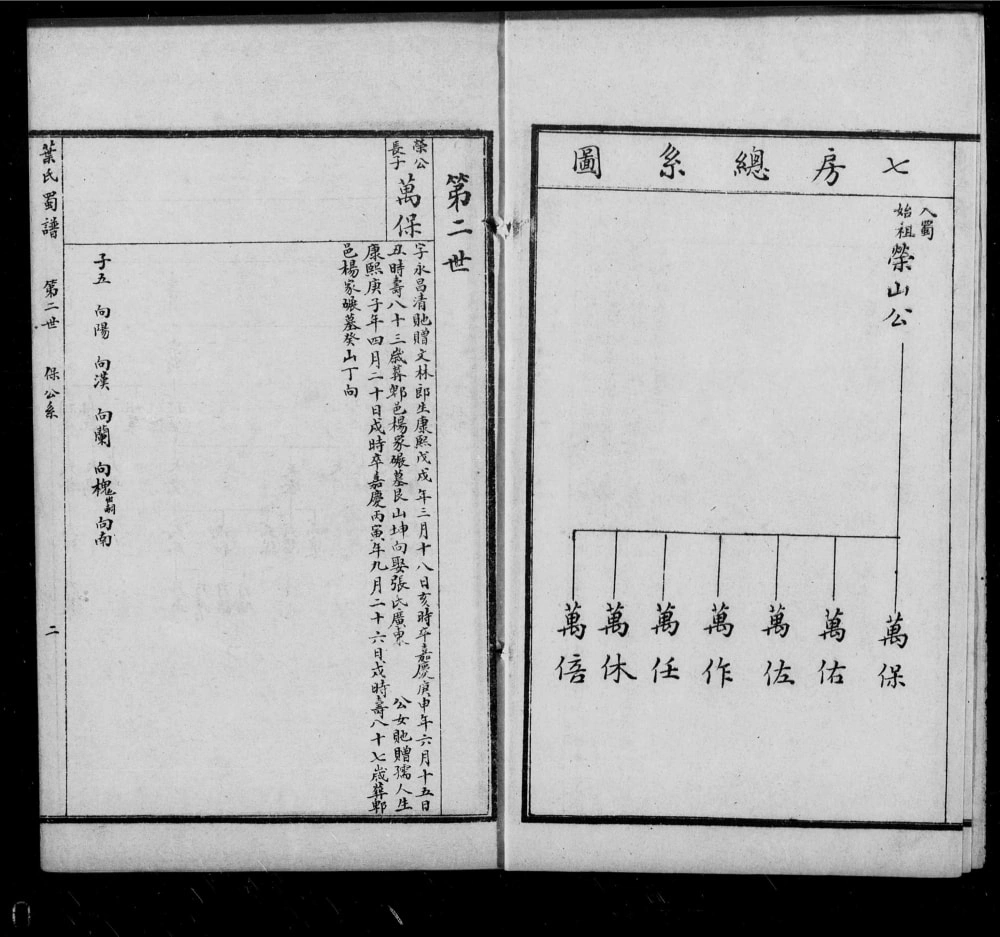 七房總系圖
入蜀始祖榮山公
萬保
萬佑
萬佐
萬作
萬任
萬休
萬倍
第二世
榮公長子
萬保
字永昌清貤贈文林郎生康熙戊戌年三月十八日亥時卒嘉慶庚申年六月十五日
丑時壽八十三歲葬郫邑楊家碾墓艮山坤向娶張氏廣東 公女貤贈孺人生
康熙庚子年四月二十日戌時卒嘉慶丙寅年九月二十六日戌時壽八十七歲葬郫
邑楊家碾墓癸山丁向
子五 向陽 向漢 向蘭 向槐 向南
葉氏蜀譜 第二世 保公系 二